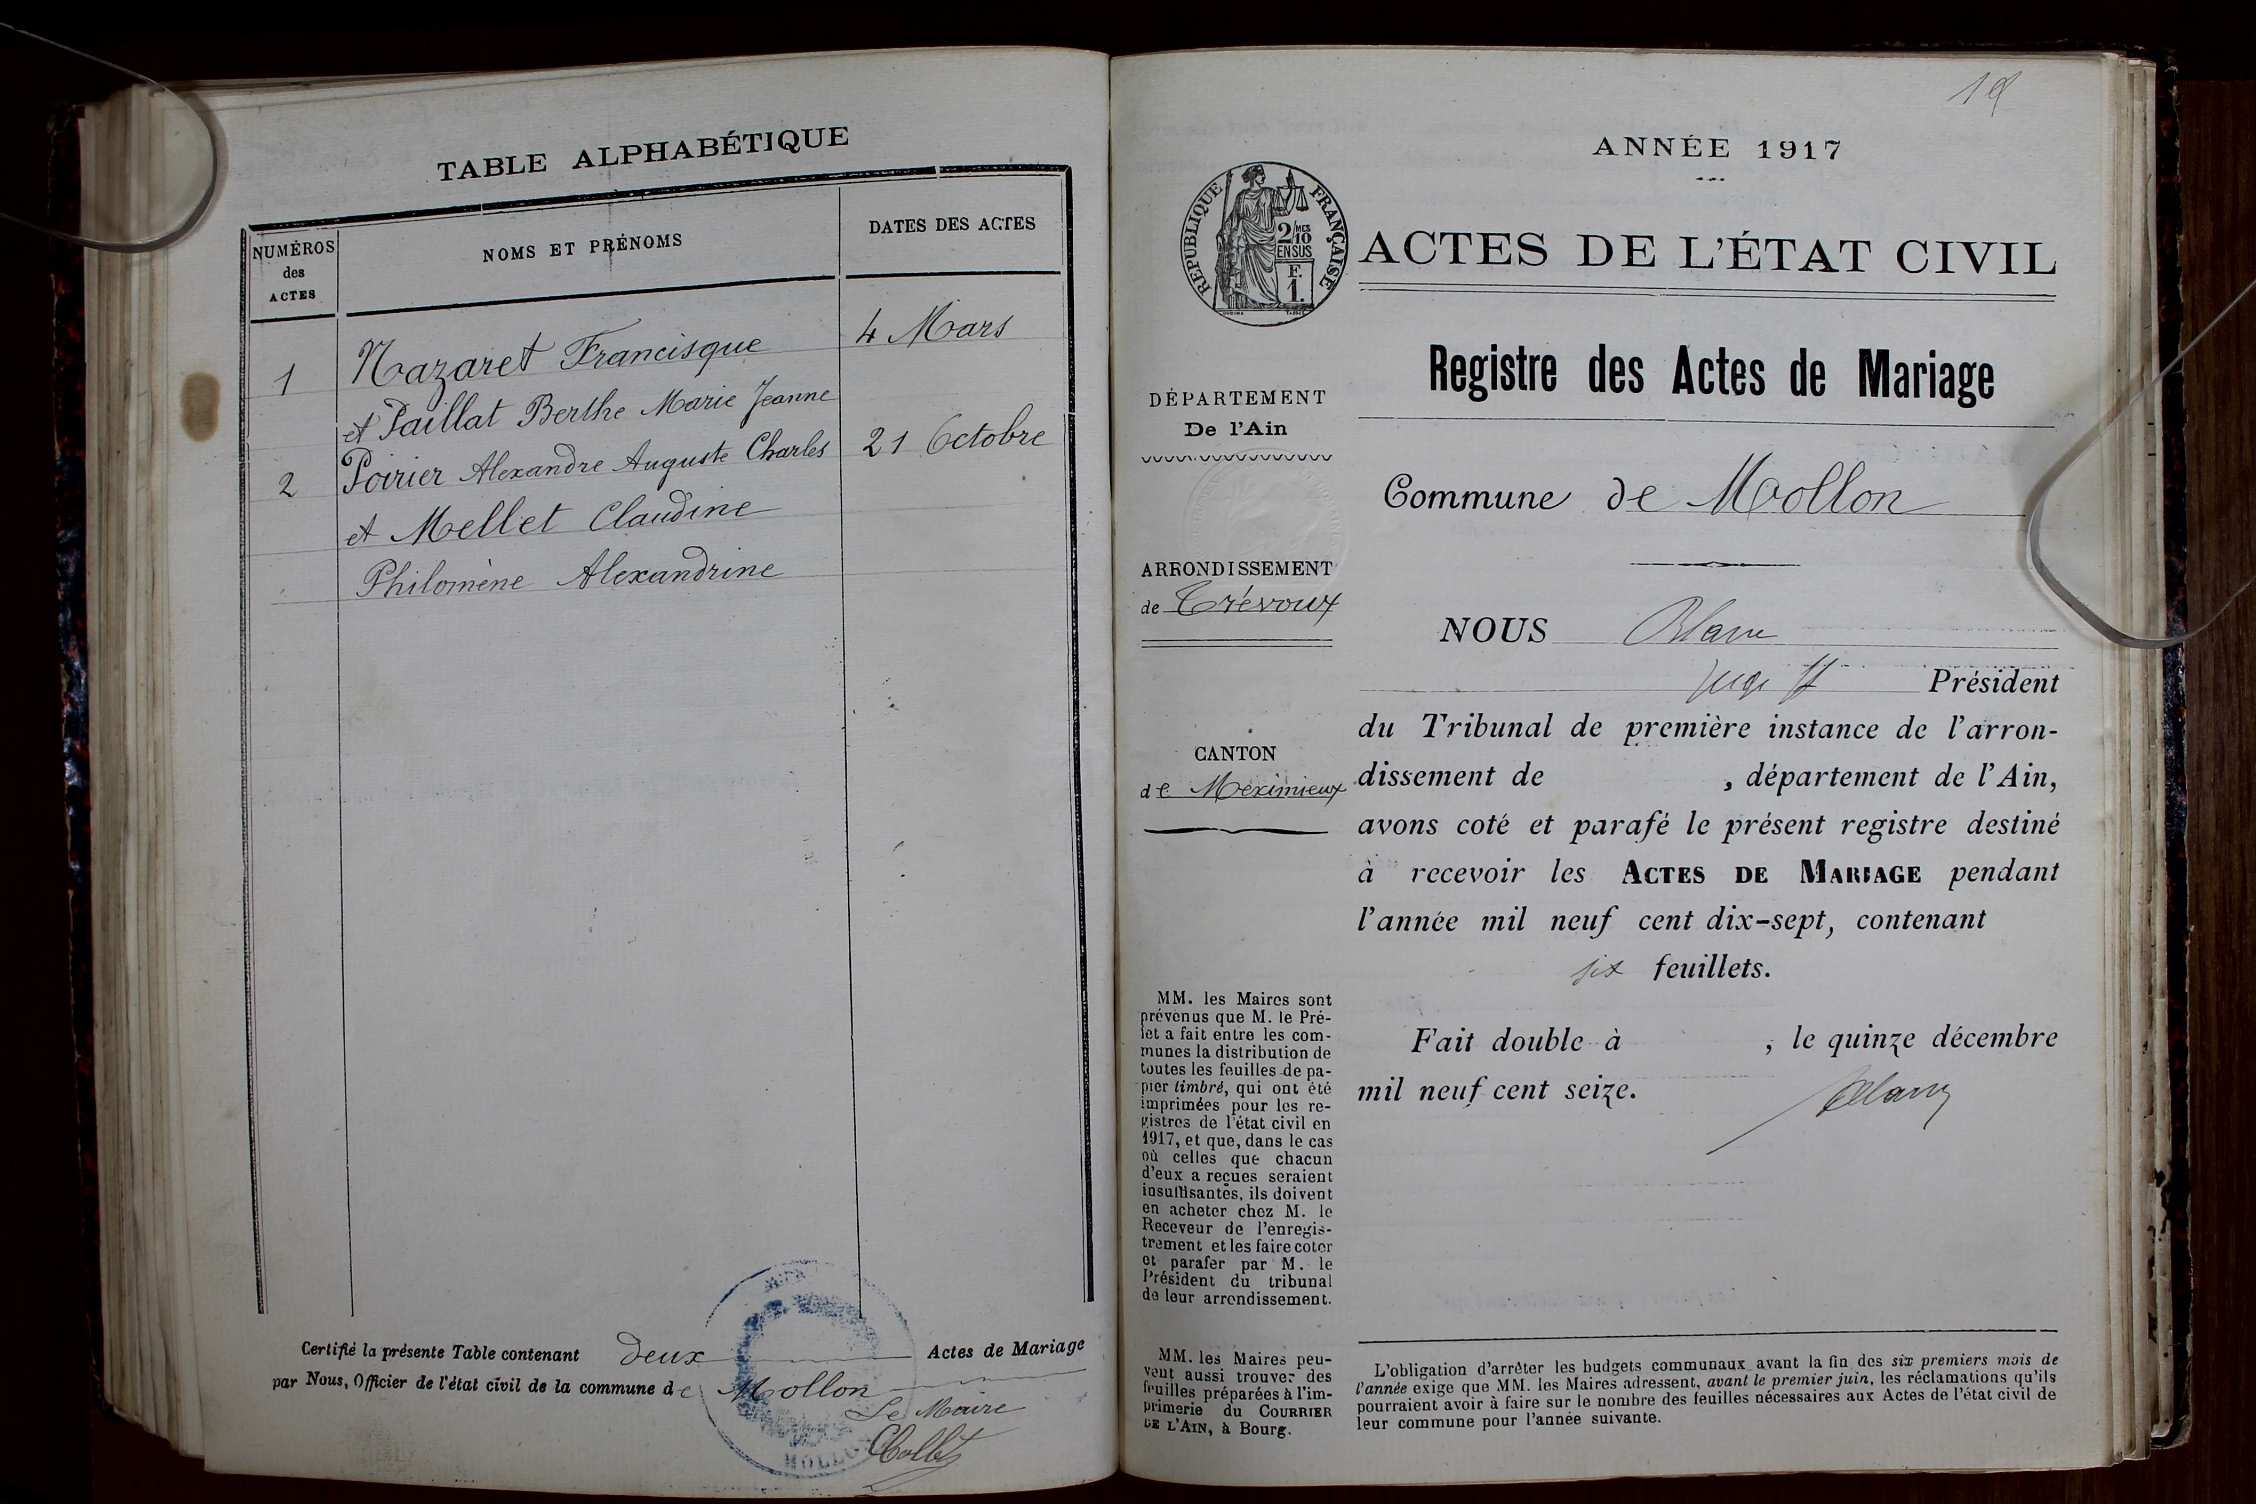 TABLE ALPHABÉTIQUE
NUMÉROS
des
ACTES
NOMS ET PRÉNOMS
DATES DES ACTES
1 Nazaret Francisque 4 Mars
et Paillat Berthe Marie Jeanne
2 Poirier Alexandre Auguste Charles 21 Octobre
et Mellet Claudine
Philomène Alexandrine
Certifié la présente Table contenant deux Actes de Mariage
par Nous, Officier de l'état civil de la commune de Mollon
Le Maire
MOLLON
ANNÉE 1917
RÉPUBLIQUE FRANÇAISE
2/10 MES
EN SUS
F.
1.
ACTES DE L'ÉTAT CIVIL
Registre des Actes de Mariage
DÉPARTEMENT
De l'Ain
Commune de Mollon
ARRONDISSEMENT
de Trévoux
CANTON
de Méximieux
NOUS Blanc
Juge Président
du Tribunal de première instance de l'arron-
dissement de , département de l'Ain,
avons coté et parafé le présent registre destiné
à recevoir les ACTES DE MARIAGE pendant
l'année mil neuf cent dix-sept, contenant
six feuillets.
Fait double à , le quinze décembre
mil neuf cent seize.
MM. les Maires sont
prévenus que M. le Pré-
fet a fait entre les com-
munes la distribution de
toutes les feuilles de pa-
pier timbré, qui ont été
imprimées pour les re-
gistres de l'état civil en
1917, et que, dans le cas
où celles que chacun
d'eux a reçues seraient
insuffisantes, ils doivent
en acheter chez M. le
Receveur de l'enregis-
trement et les faire coter
et parafer par M. le
Président du tribunal
de leur arrondissement.
MM. les Maires peu-
vent aussi trouver des
feuilles préparées à l'im-
primerie du COURRIER
DE L'AIN, à Bourg.
L'obligation d'arrêter les budgets communaux avant la fin des six premiers mois de
l'année exige que MM. les Maires adressent, avant le premier juin, les réclamations qu'ils
pourraient avoir à faire sur le nombre des feuilles nécessaires aux Actes de l'état civil de
leur commune pour l'année suivante.